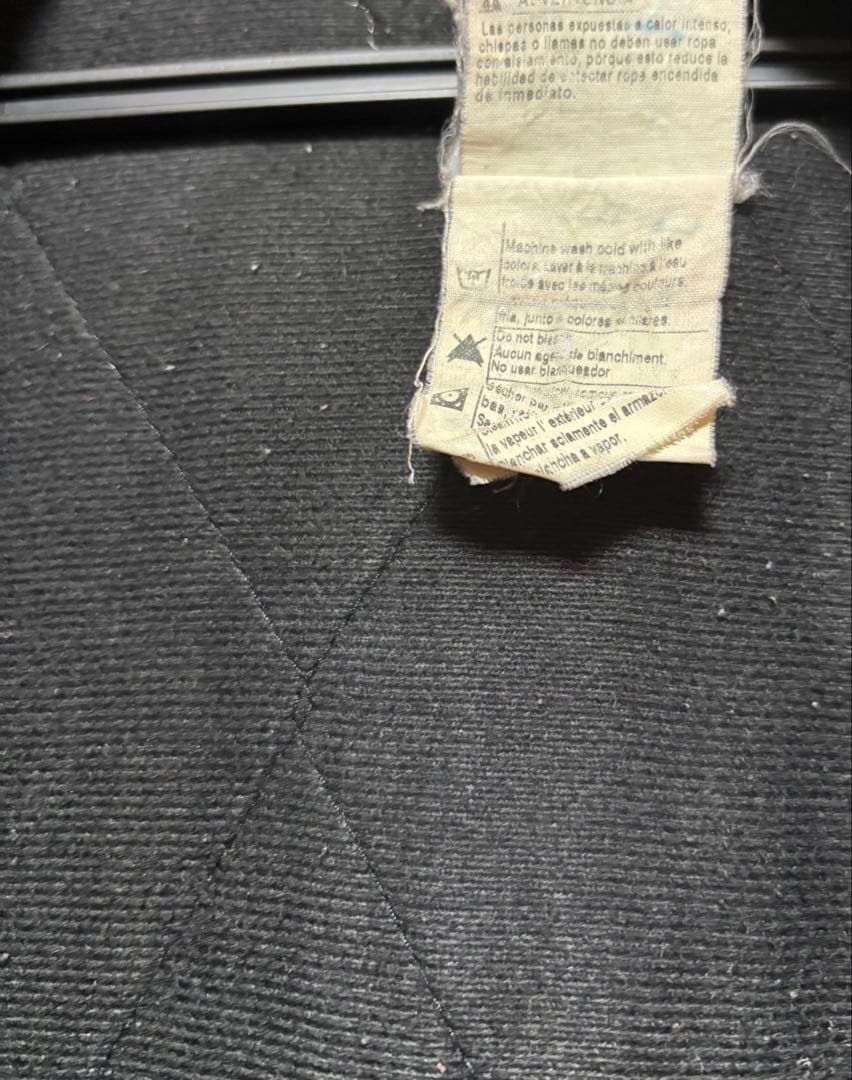 Las personas expuestas a calor intenso,
chispas o llamas no deben usar ropa
con aislamiento, porque esto reduce la
habilidad de detectar ropa encendida
de inmediato.
Machine wash cold with like
colors. Laver à la machine à l'eau
froide avec les mêmes couleurs.
fria, junto a colores similares.
Do not
Aucun agent de blanchiment.
No usar blanqueador
Sécher par
bas,
la vapeur l'extérieur
planchar solamente el armazon
plancha a vapor.